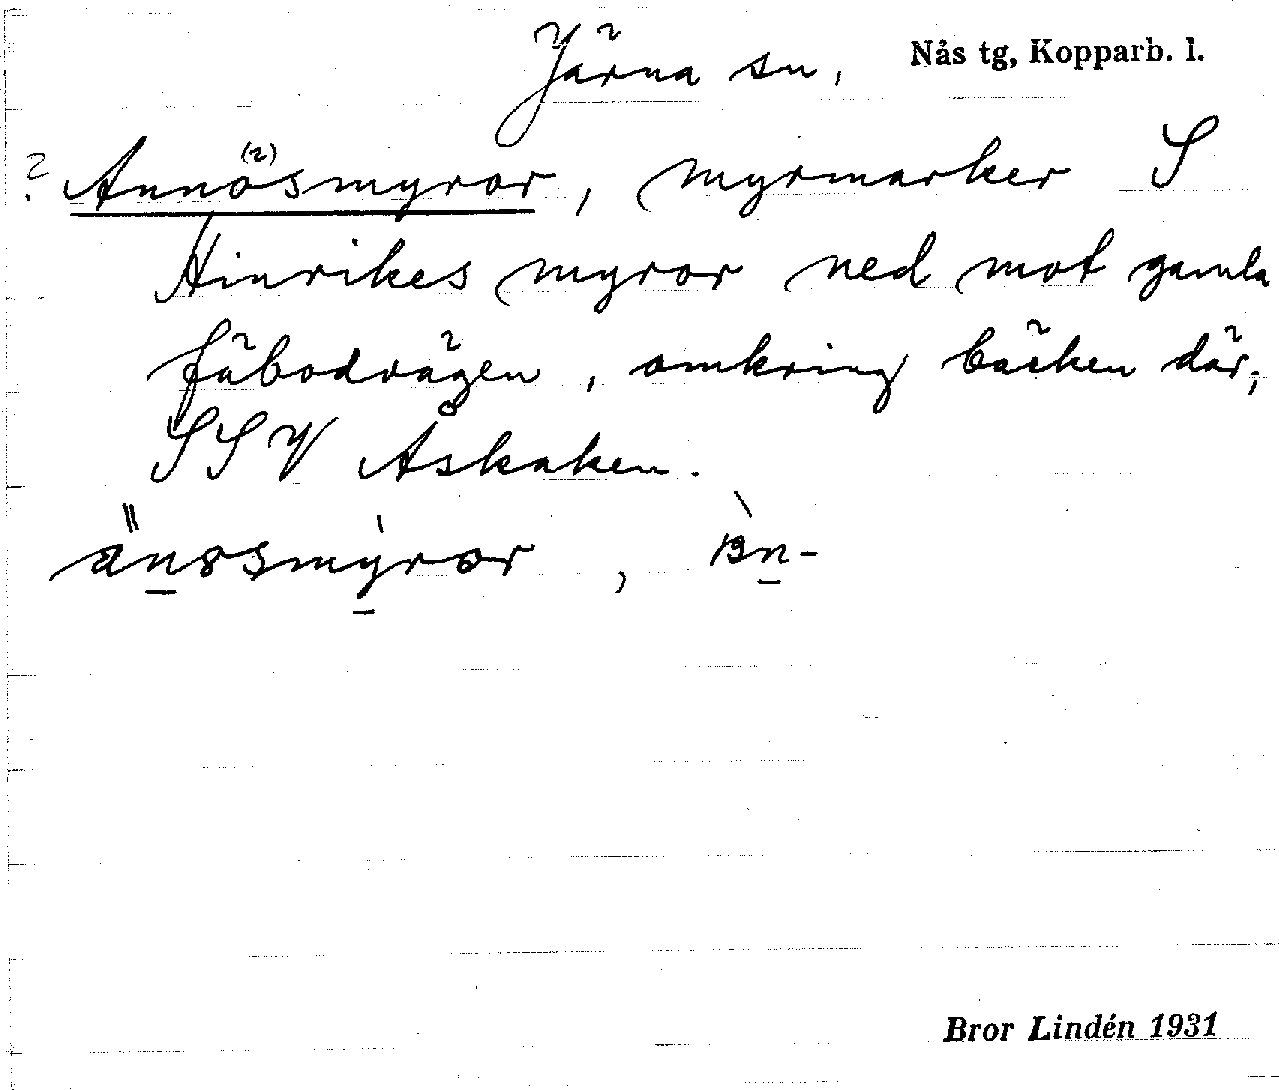 Järna sn, Nås tg, Kopparb. l.
? Annösmyror, myrmarker S
Hinrikes myror ned mot gamla
fäbodvägen, omkring bäcken där,
SSV Åskaken.
änssmyror,
Bror Lindén 1931